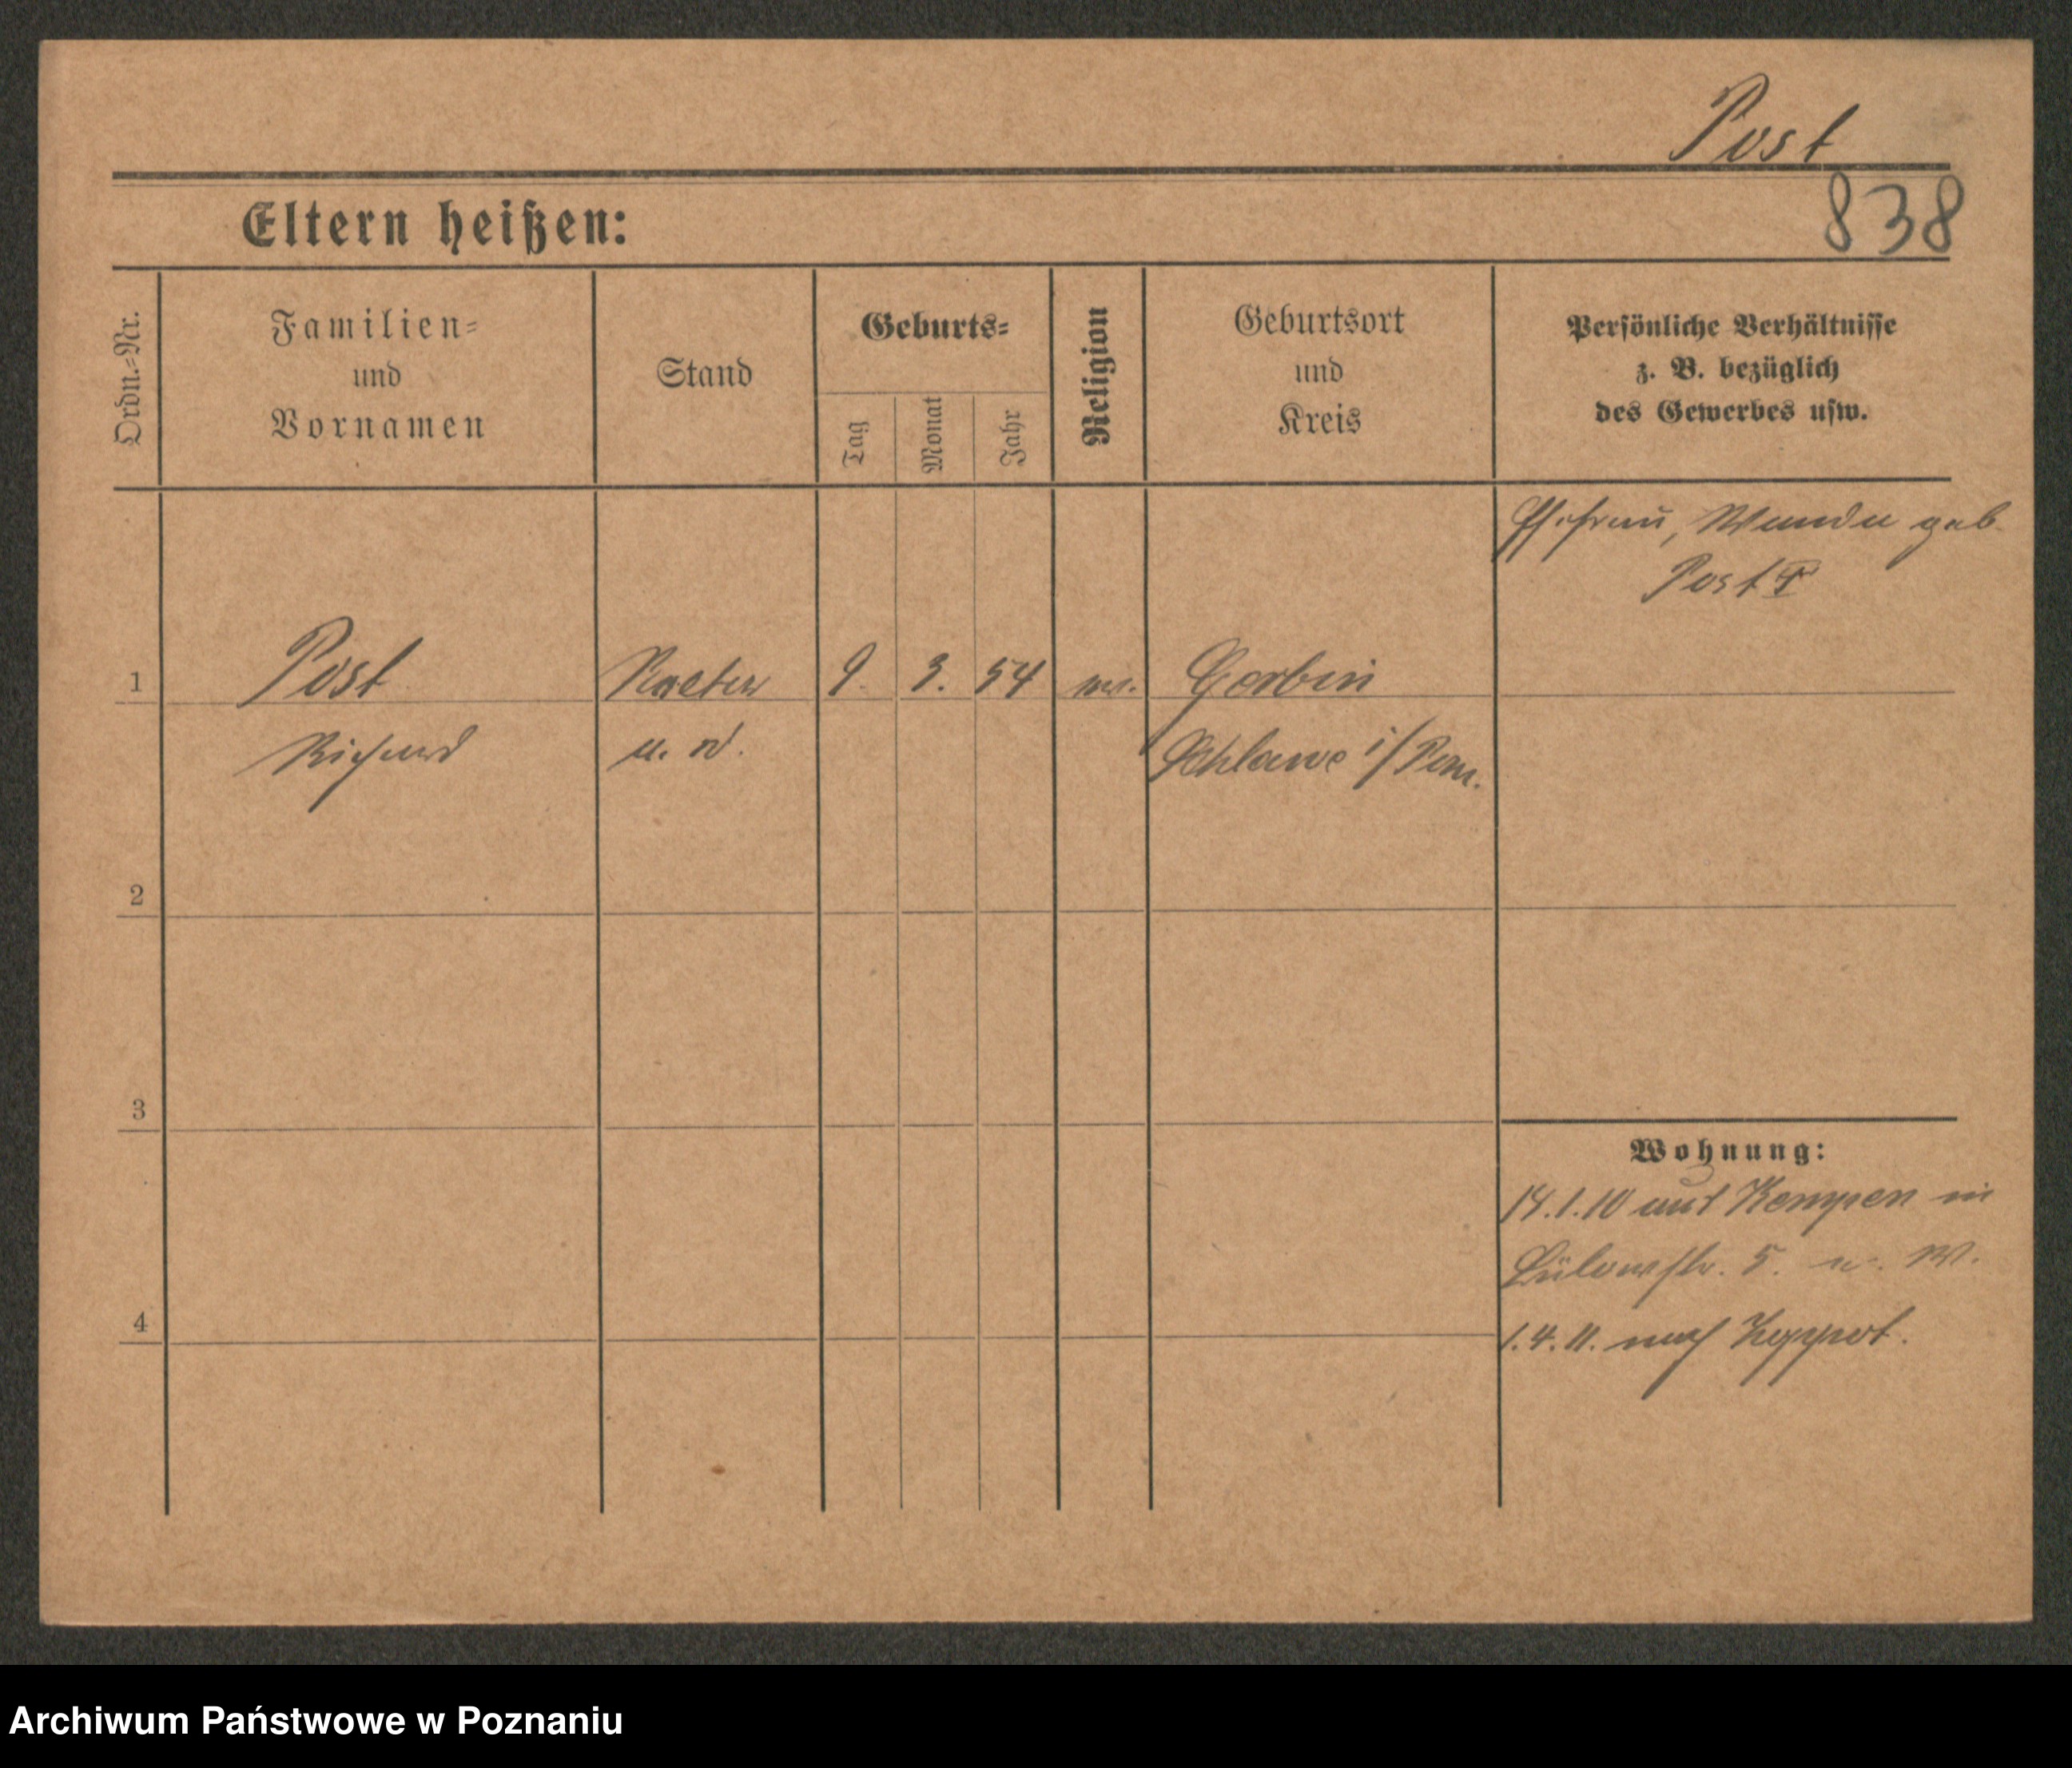 Post
838
Eltern heißen:
Ordn.-Nr.
Familien-
und
Vornamen
Stand
Geburts-
Tag
Monat
Jahr
Religion
Geburtsort
und
Kreis
Persönliche Verhältnisse
z. B. bezüglich
des Gewerbes usw.
Ehefrau, Wanda geb.
Post
1
Post
9. 3. 54
Gerbin
Richard
Schlawe i/Pom.
2
3
Wohnung:
14.1.10 aus Kempen in
Bülowstr. 5.
4
1.4.11. nach Zoppot.
Archiwum Państwowe w Poznaniu